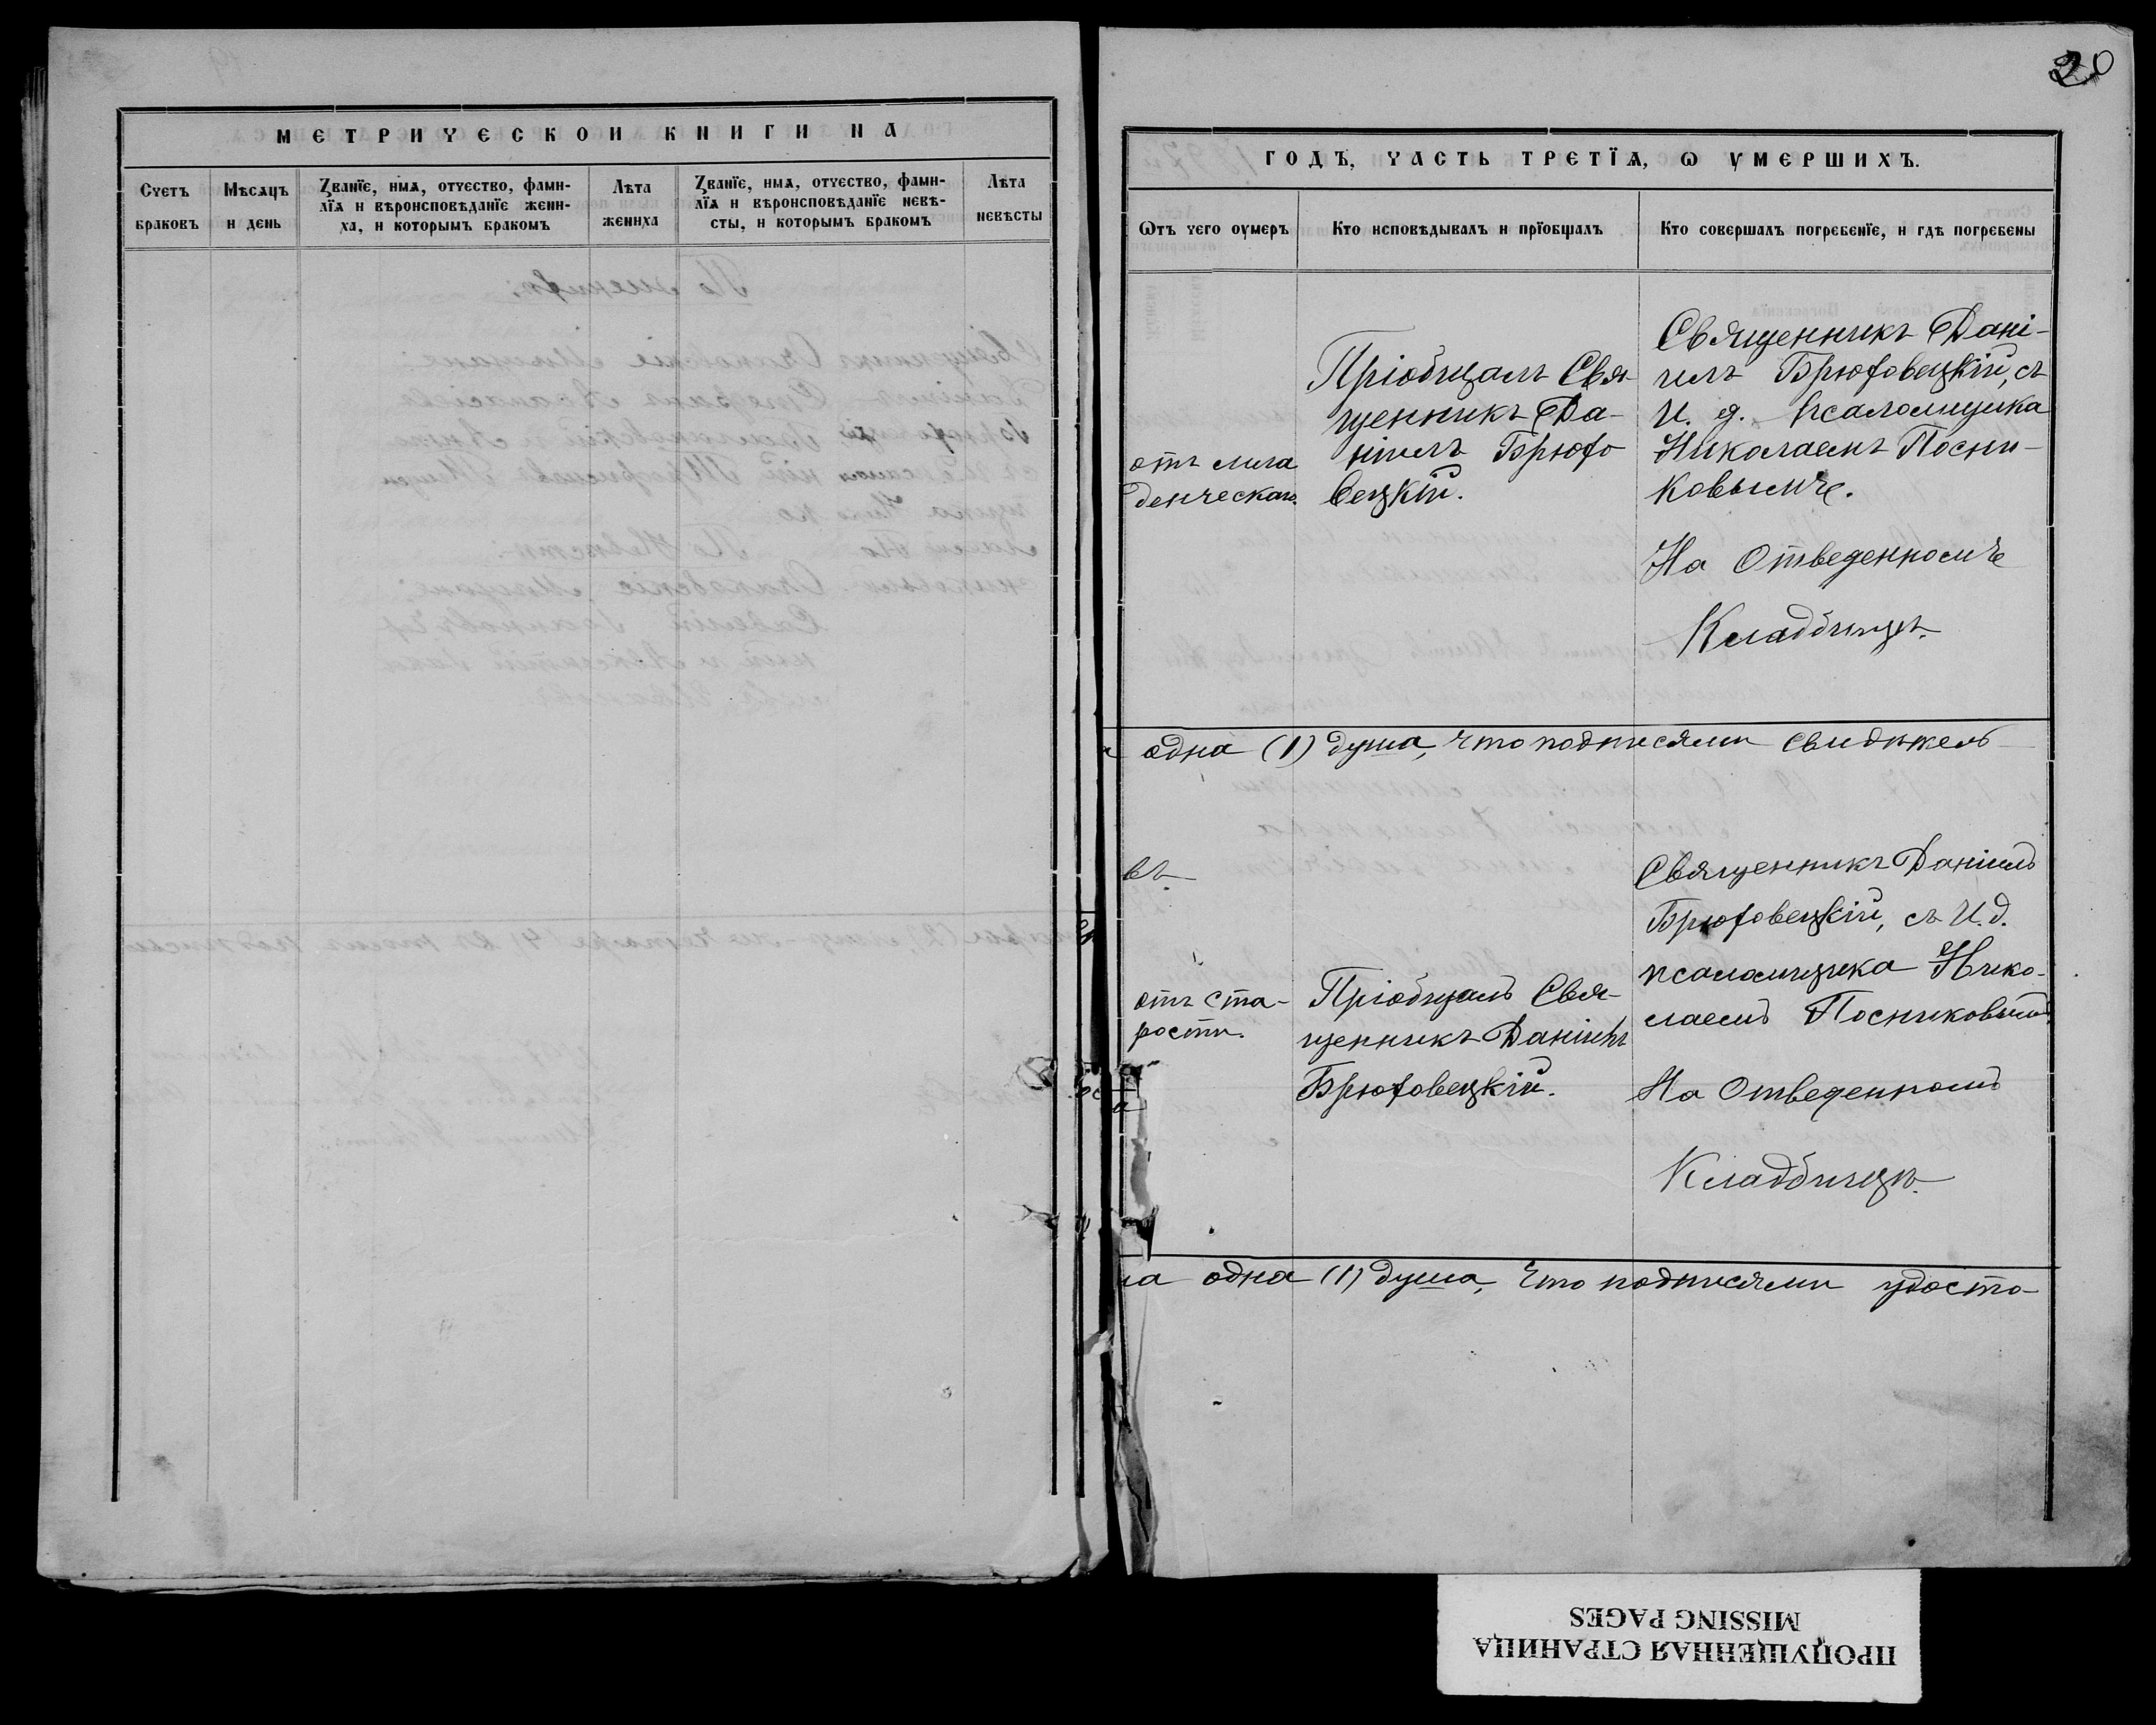 20
МЕТРИЧЕСКОЙ КНИГИ НА
Счетъ браковъ
Мѣсяцъ и день
Званїе, имѧ, отчество, фами-
лїѧ и вѣроисповѣданїе жени-
ха, и которымъ бракомъ
Лѣта жениха
Званїе, имѧ, отчество, фами-
лїѧ и вѣроисповѣданїе невѣ-
сты, и которымъ бракомъ
Лѣта невѣсты
ГОДЪ, ЧАСТЬ ТРЕТЇѦ, Ѡ УМЕРШИХЪ.
Ѿтъ чего оумеръ
Кто исповѣдывалъ и прїобщалъ
Кто совершалъ погребенїе, и гдѣ погребены
отъ мла
денческаго.
Пріобщалъ Свя-
щенникъ Да-
ніилъ Брюхо
вецкій.
Священникъ Дані-
илъ Брюховецкій, съ
И. д. псаломщика
Николаемъ Посни-
ковымъ.
На Отведенномъ
Кладбищѣ.
одна (1) душа, что подписями свидѣтель
въ.
отъ ста-
рости.
Пріобщалъ Свя-
щенникъ Даніилъ
Брюховецкій.
Священникъ Даніилъ
Брюховецкій, съ И.д.
псаломщика Нико-
лаемъ Посниковымъ.
На Отведенномъ
Кладбищѣ.
на одна (1) душа, что подписями удосто-
ПРОПУЩЕННАЯ СТРАНИЦА
MISSING PAGES